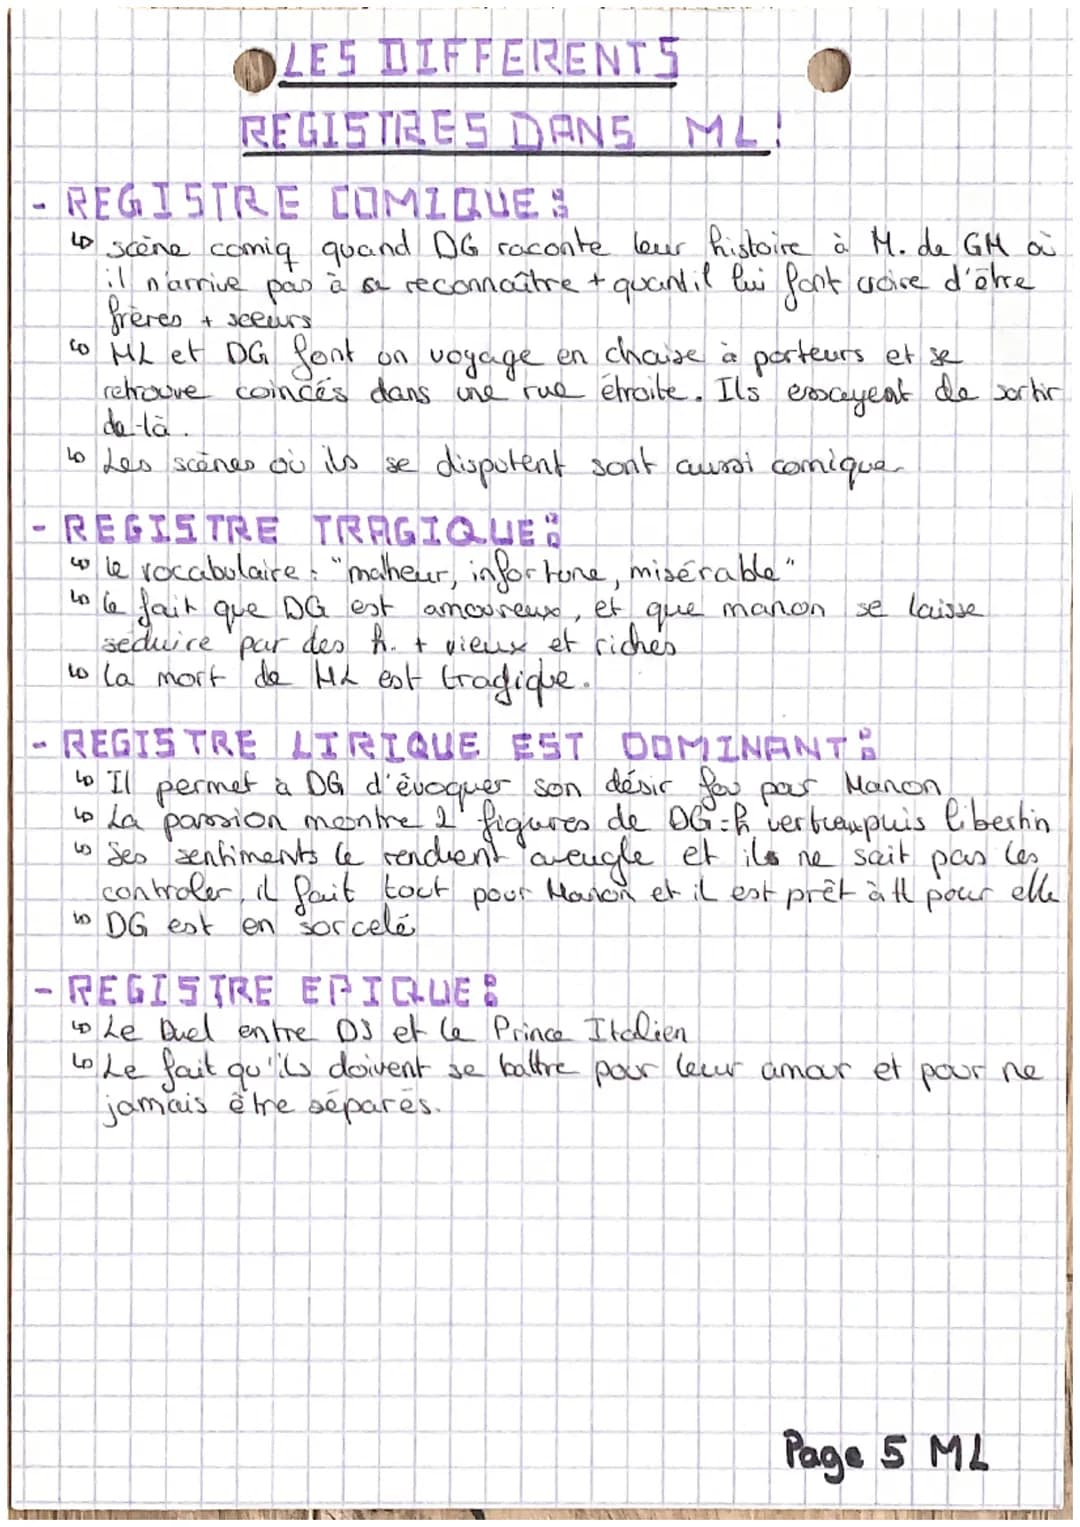 LES DIFFERENTS
REGISTRES DANS ML:
- REGISTRE COMIQUE:
↳ scène comiq quand DG raconte leur histoire à M. de GM où
il n'arrive pas à se reconnaître + quand il lui font croire d'être
frères + soeurs
↳ ML et DG font un voyage en chaise à porteurs et se
retrouve coincés dans une rue étroite. Ils essayent de sortir
de là.
↳ Les scènes où ils se disputent sont aussi comique.
- REGISTRE TRAGIQUE:
↳ le vocabulaire : "malheur, infortune, misérable"
↳ le fait que DG est amoureux, et que manon se laisse
séduire par des h. + vieux et riches
↳ la mort de ML est tragique.
- REGISTRE LIRIQUE EST DOMINANT:
↳ Il permet à DG d'évoquer son désir fou pour Manon
↳ La passion montre 2 figures de DG = h vertueux puis libertin
↳ Ses sentiments le rendent aveugle et ils ne sait pas les
controler, il fait tout pour Manon et il est prêt à tt pour elle
↳ DG est en sorcelé
- REGISTRE EPIQUE:
↳ Le Duel entre DJ et le Prince Italien
↳ Le fait qu'ils doivent se battre pour leur amour et pour ne
jamais être séparés.
Page 5 ML